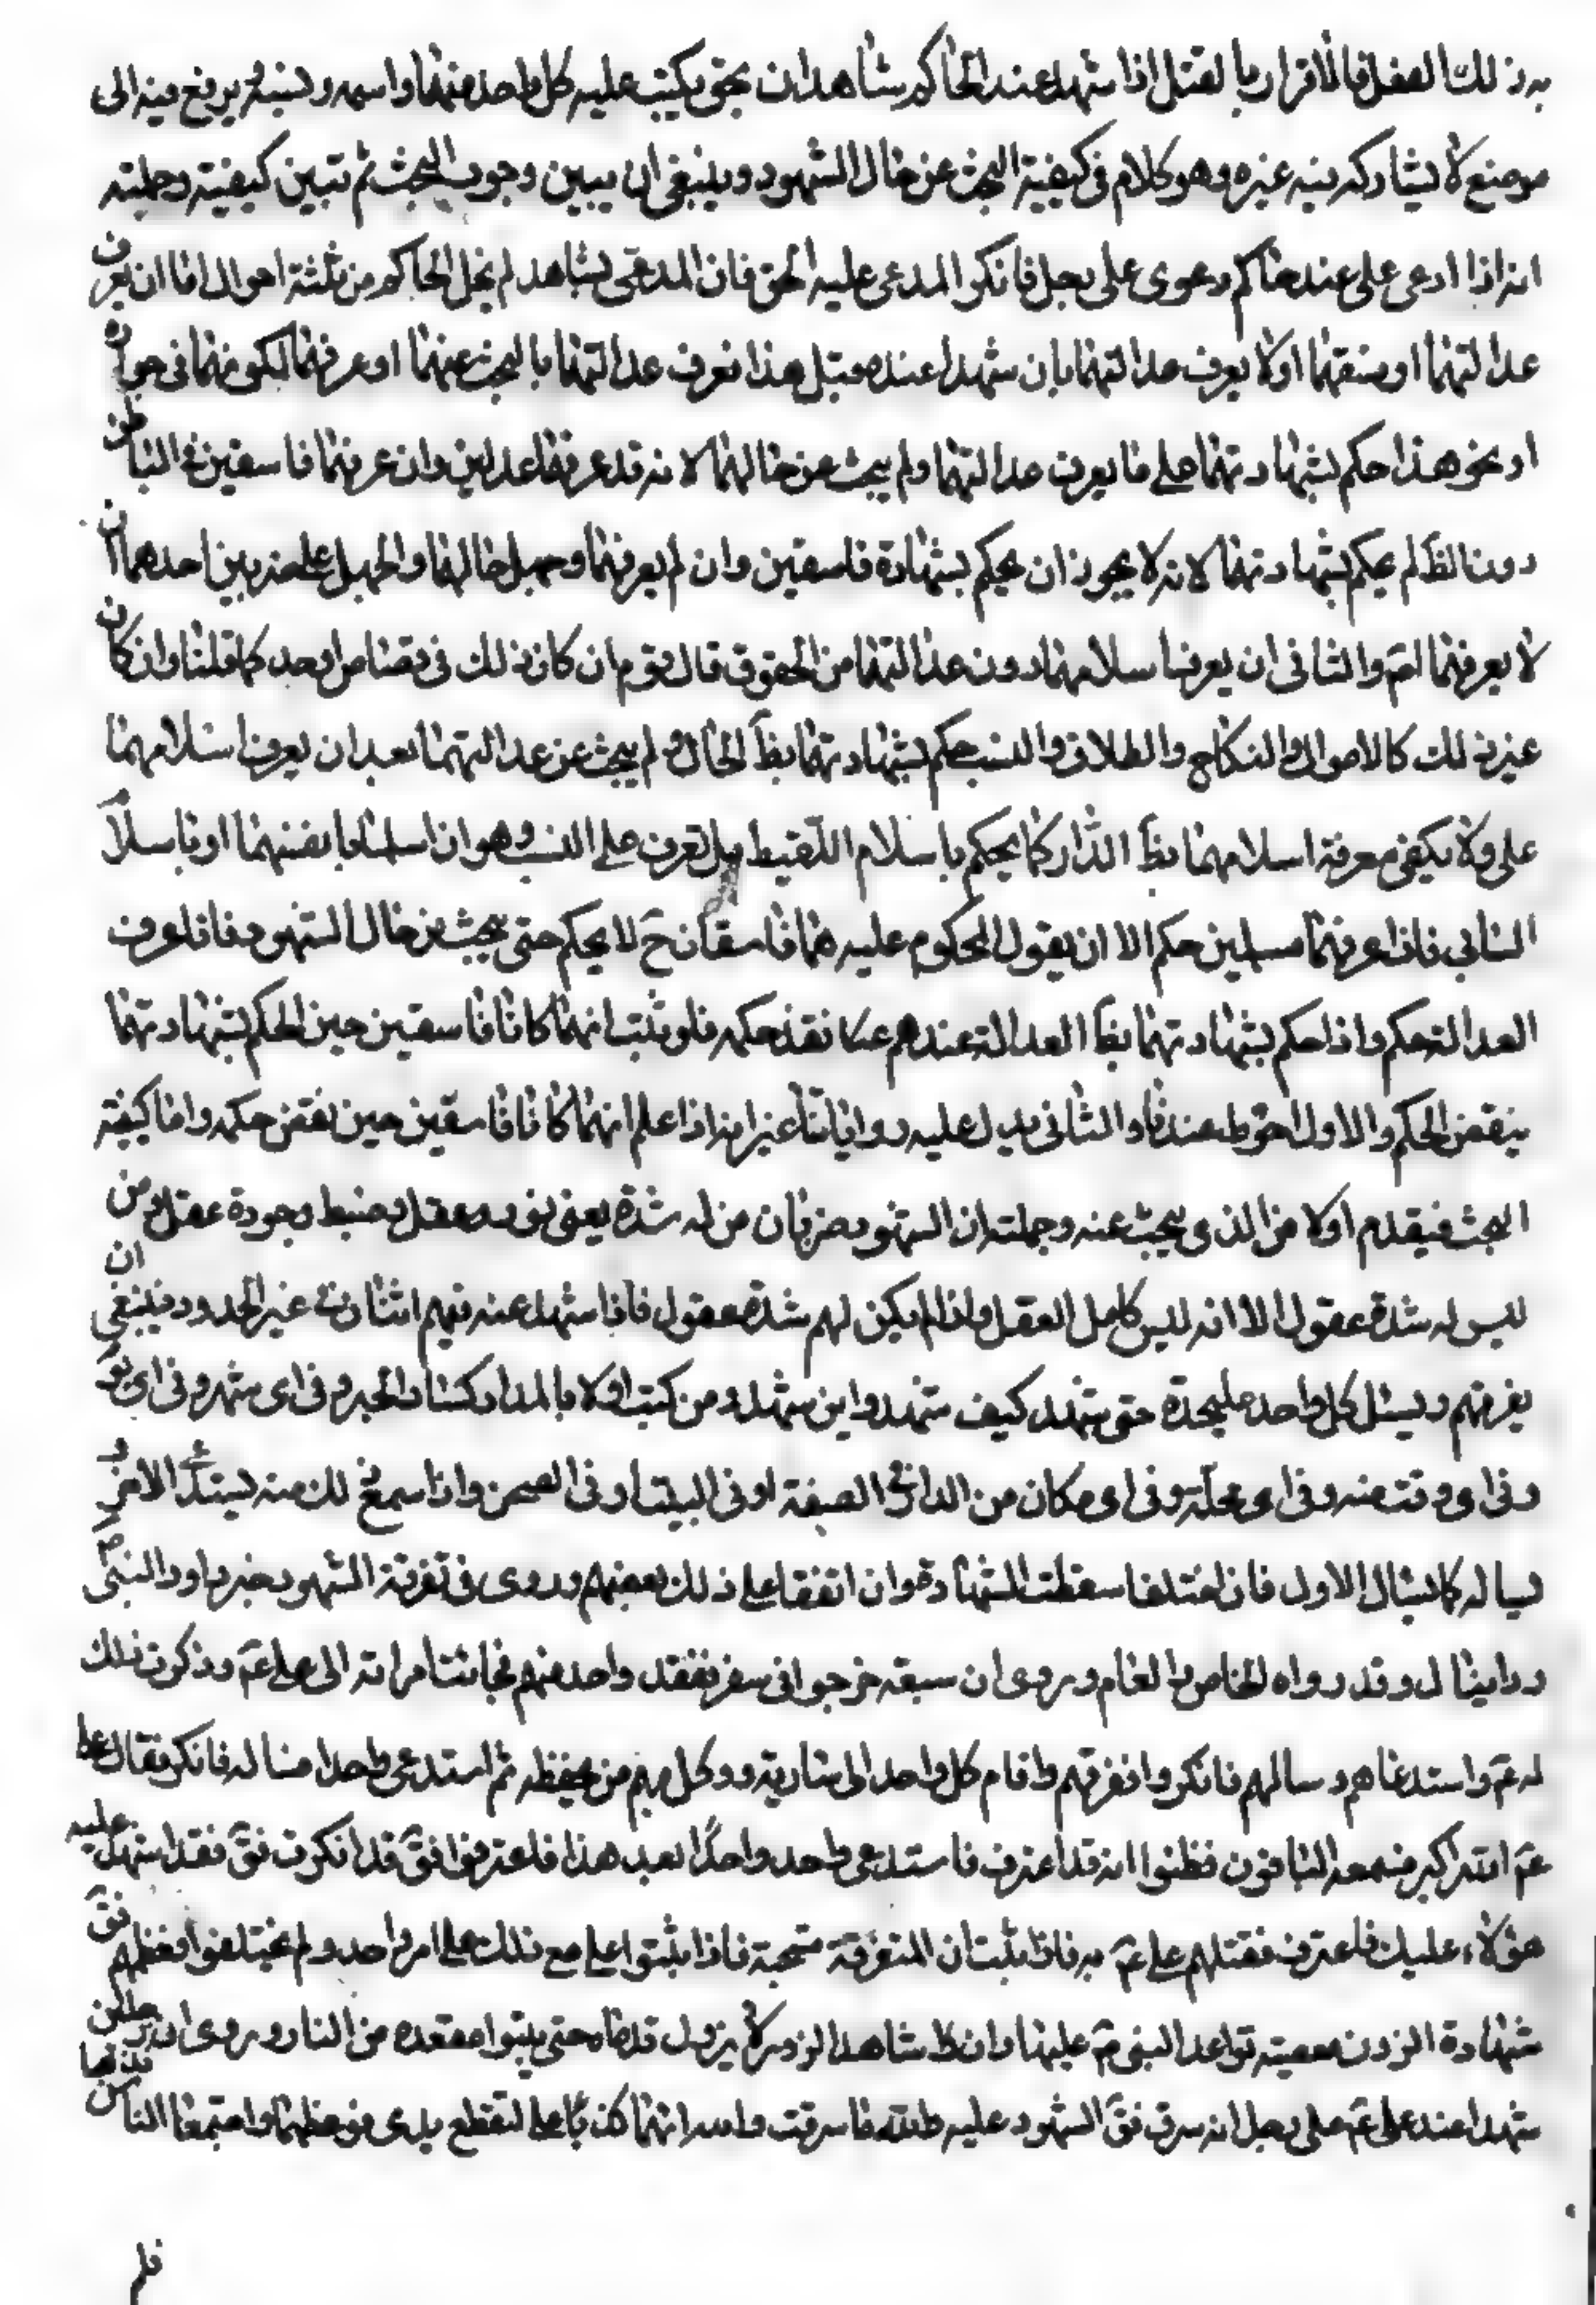 به ذلك الفعل فالاقرار بالقتل اذا شهد عند الحاكم شاهدان بحق يكتب عليه كل واحد منهما واسمه ونسبه ويرفع فيه الى
موضع لا يشاركه فيه غيره وهو كلام في كيفية البحث عن حال الشهود وينبغي ان يبين وجوب البحث ثم تبين كيفيته وجملته
انه اذا ادعى على عند حاكم دعوى على رجل فانكر المدعى عليه الحق فان المدعي بشاهد لم يخل الحاكم من ثلثة احوال اما ان يعرف
عدالتهما او فسقهما او لا يعرف عدالتهما بان شهدا عنده قبل هذا نعرف عدالتهما بالبحث عنهما او عرفهما لكونهما في جواره
او نحو هذا حكم بشهادتهما على ما يعرف عدالتهما ولم يبحث عن حالهما لانه قد عرفهما عدلين وان عرفهما فاسقين في الباطن
دون الظ لم يحكم بشهادتهما لانه لا يجوز ان يحكم بشهادة فاسقين وان لم يعرفهما وجهل حالهما والجهل على ضربين احدهما ان
لا يعرفهما اصم والثاني ان يعرف اسلامهما دون عدالتهما من الحقوق قال قوم ان كان ذلك في قصاص او حد كما قلنا وان كان
غير ذلك كالاموال والنكاح والطلاق والنسب حكم بشهادتهما بظ الحال ولم يبحث عن عدالتهما بعد ان يعرف اسلامهما
على ولا يكفي معرفة اسلامهما بظ الدار كما يحكم باسلام اللقيط بل تعرف على النسب وهو ان اسلما بانفسهما او باسلام
السابي فاذا عرفهما مسلمين حكم الا ان يقول المحكوم عليه هما فاسقان فح لا يحكم حتى يبحث عن حال الشهود فاذا عرف
العدالة حكم واذا حكم بشهادتهما بظ العدالة عندهم عكا نفذ حكمه فلو ثبت انهما كانا فاسقين حين الحكم بشهادتهما
ينقض الحكم والاول احوط عندنا والثاني يدل عليه رواياتنا غير انه اذا علم انهما كانا فاسقين حين نقض حكمه واما كيفية
البحث فيقدم اولا من الذي يبحث عنه وجملته ان الشهود ضربان من له شدة يعني نور وعقل وضبط وجودة عقل ومن
ليس له شدة عقول الا انه ليس كامل العقل واذا لم يكن لهم شدة عقول فاذا شهد عنه فيهم اثنان في غير الحدود فينبغي ان
يفرقهم ويسئل كل واحد عليحدة حتى يشهد كيف شهدوا اين شهد ومن كتب اولا بالمداد كتبنا والخبر وفي اى شهر وفي اى يوم
وفي اى وقت منه وفي اى محلة وفي اى مكان من الدار في الصفة او في البيت او في الصحن واذا سمع ذلك منه يستدعي الاخر و
يساله كما يسال الاول فان اختلفا سقطت الشهادة وان اتفقا على ذلك بعضهم وروى في تفرقة الشهود خبر داود النبي
ودانيال وقد رواه الخاص والعام وروى ان سبعة خرجوا في سفر ففقد واحد منهم فجائت امراته الى على ع وذكرت ذلك
له ع واستدعاهم وسالهم فانكروا ففرقهم واقام كل واحد الى سارية ووكل بهم من يحفظه ثم استدعى واحدا فساله فانكر فقال على
ع الله اكبر فسمعه الباقون فظنوا انه قد اعترف فاستدعى واحد واحدا بعد هذا فاعترفوا فق قد انكرت فق فقد شهد عليه
هؤلاء عليك فاعترف فقتلهم على ع به فاذا ثبت ان المتفرقة مستحبة فاذا ثبتوا على مع ذلك على امر واحد ولم يختلفوا وعظهم فق
شهادة الزور معصيته تواعد النبي ص عليها وان كل شاهد الزور لا يزول قدماه حتى يتبوا مقعده من النار وروى ان رجلين
شهدا عند على ع على رجل انه سرق فق الشهود عليه والله ما سرقت والله انهما كذبا على لتقطع يدى فوعظهما واجتمعا الناس
فلم